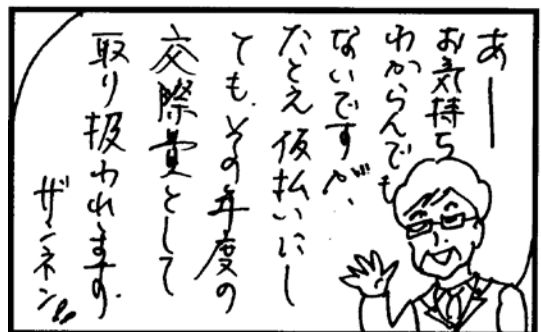 あー
お気持ち
わからんでも
ないですが、
たとえ仮払いにし
ても、その年度の
交際費として
取り扱われます。
ザンネン!!